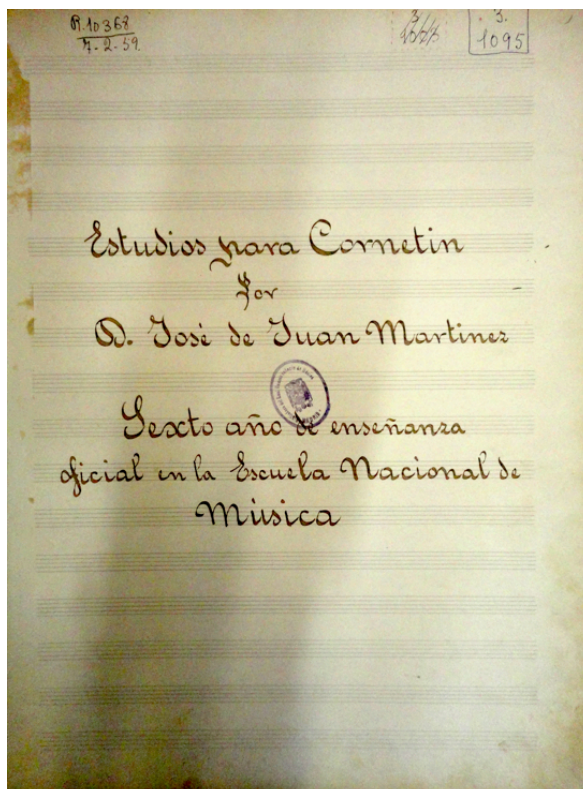 R.10368
7-2-59
3.
1095
Estudios para Cornetin
por
D. José de Juan Martinez
Sexto año de enseñanza
oficial en la Escuela Nacional de
Música